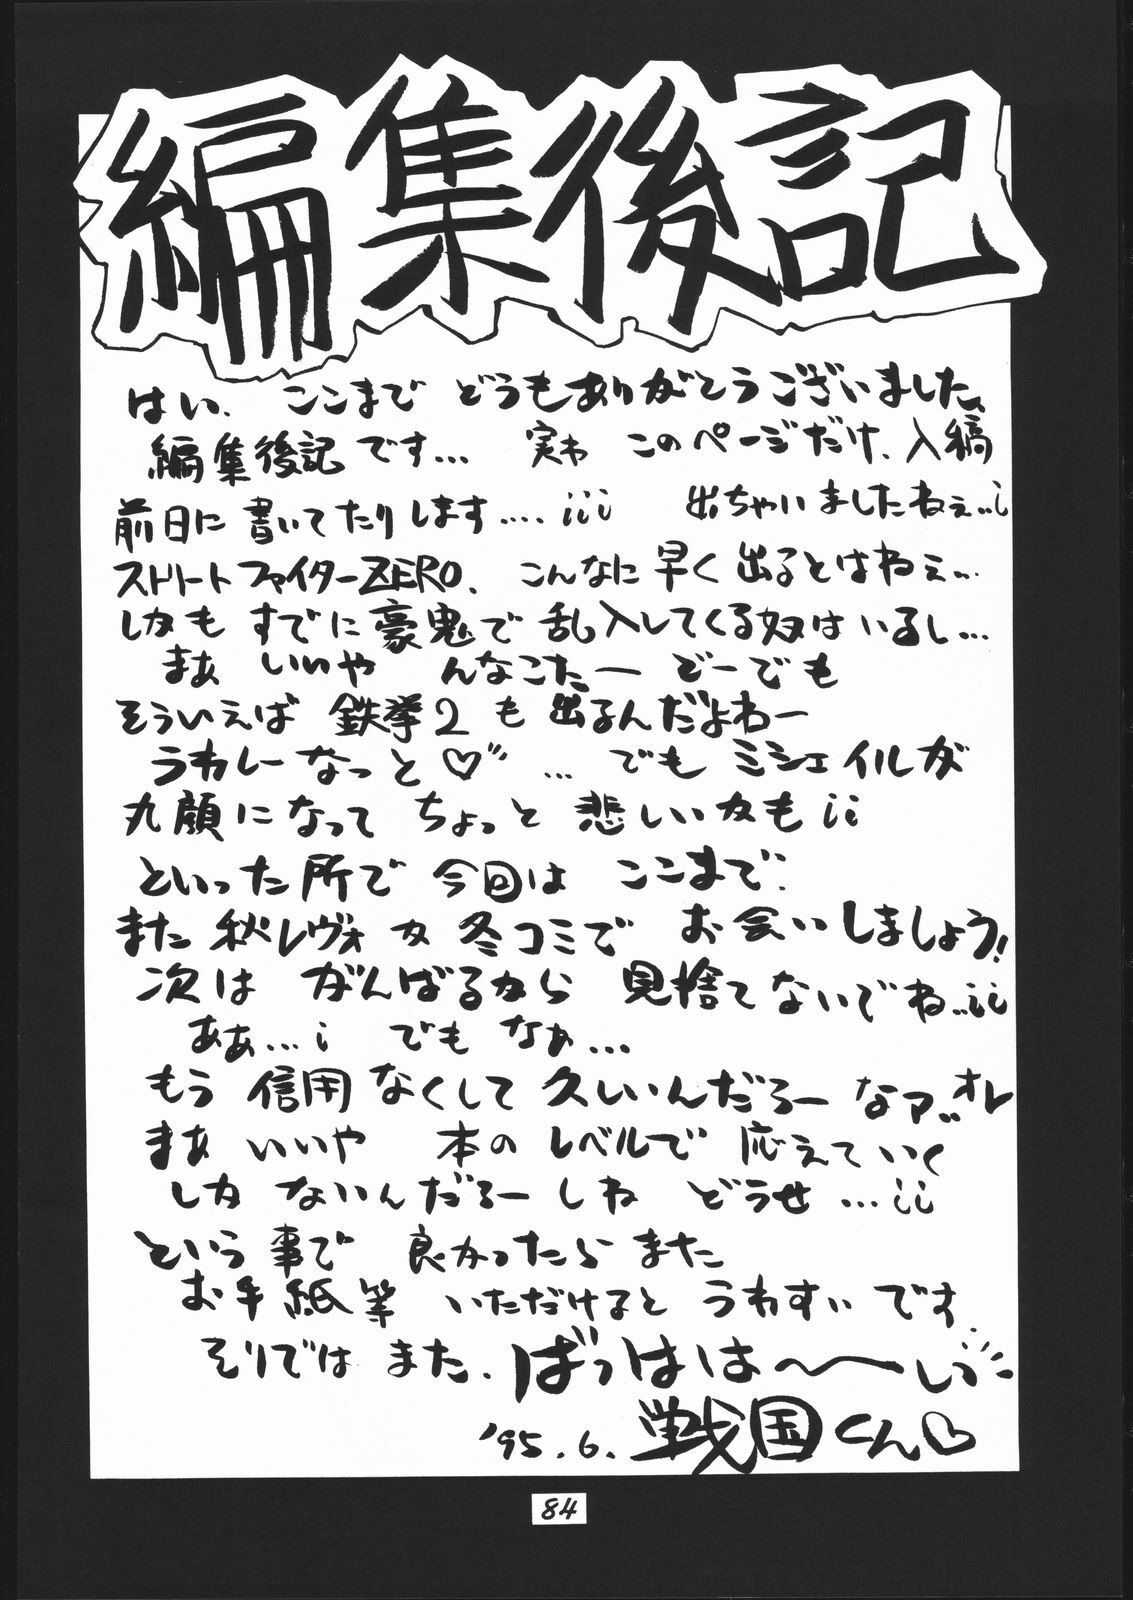 編集後記
はい、ここまで どうもありがとうございました、
編集後記です… 実わ このページだけ、入稿
前日に書いてたりします…。iii 出ちゃいましたねぇ..i
ストリートファイターZERO、こんなに早く出るとはねぇ…
しかも すでに豪鬼で乱入してくる奴はいるし…
まぁ いいや んなこたー どーでも
そういえば 鉄拳2も出るんだよねー
うれしーなっと♡ … でもミシェイルが
丸顔になって ちょっと悲しいかもii
といった所で 今回は ここまで:
また 秋レヴォか冬コミで お会いしましょう!
次は がんばるから 見捨てないでね..ii
ああ…i でもなぁ…
もう 信用なくして 久しいんだろーなァ..オレ
まぁ いいや 本のレベルで 応えていく
しか ないんだろーしね どうせ…ii
という事で 良かったら また
お手紙等 いただけると うれすぃです。
そりでは また. ばっはは〜〜い
'95.6. 戦国くん♡
84